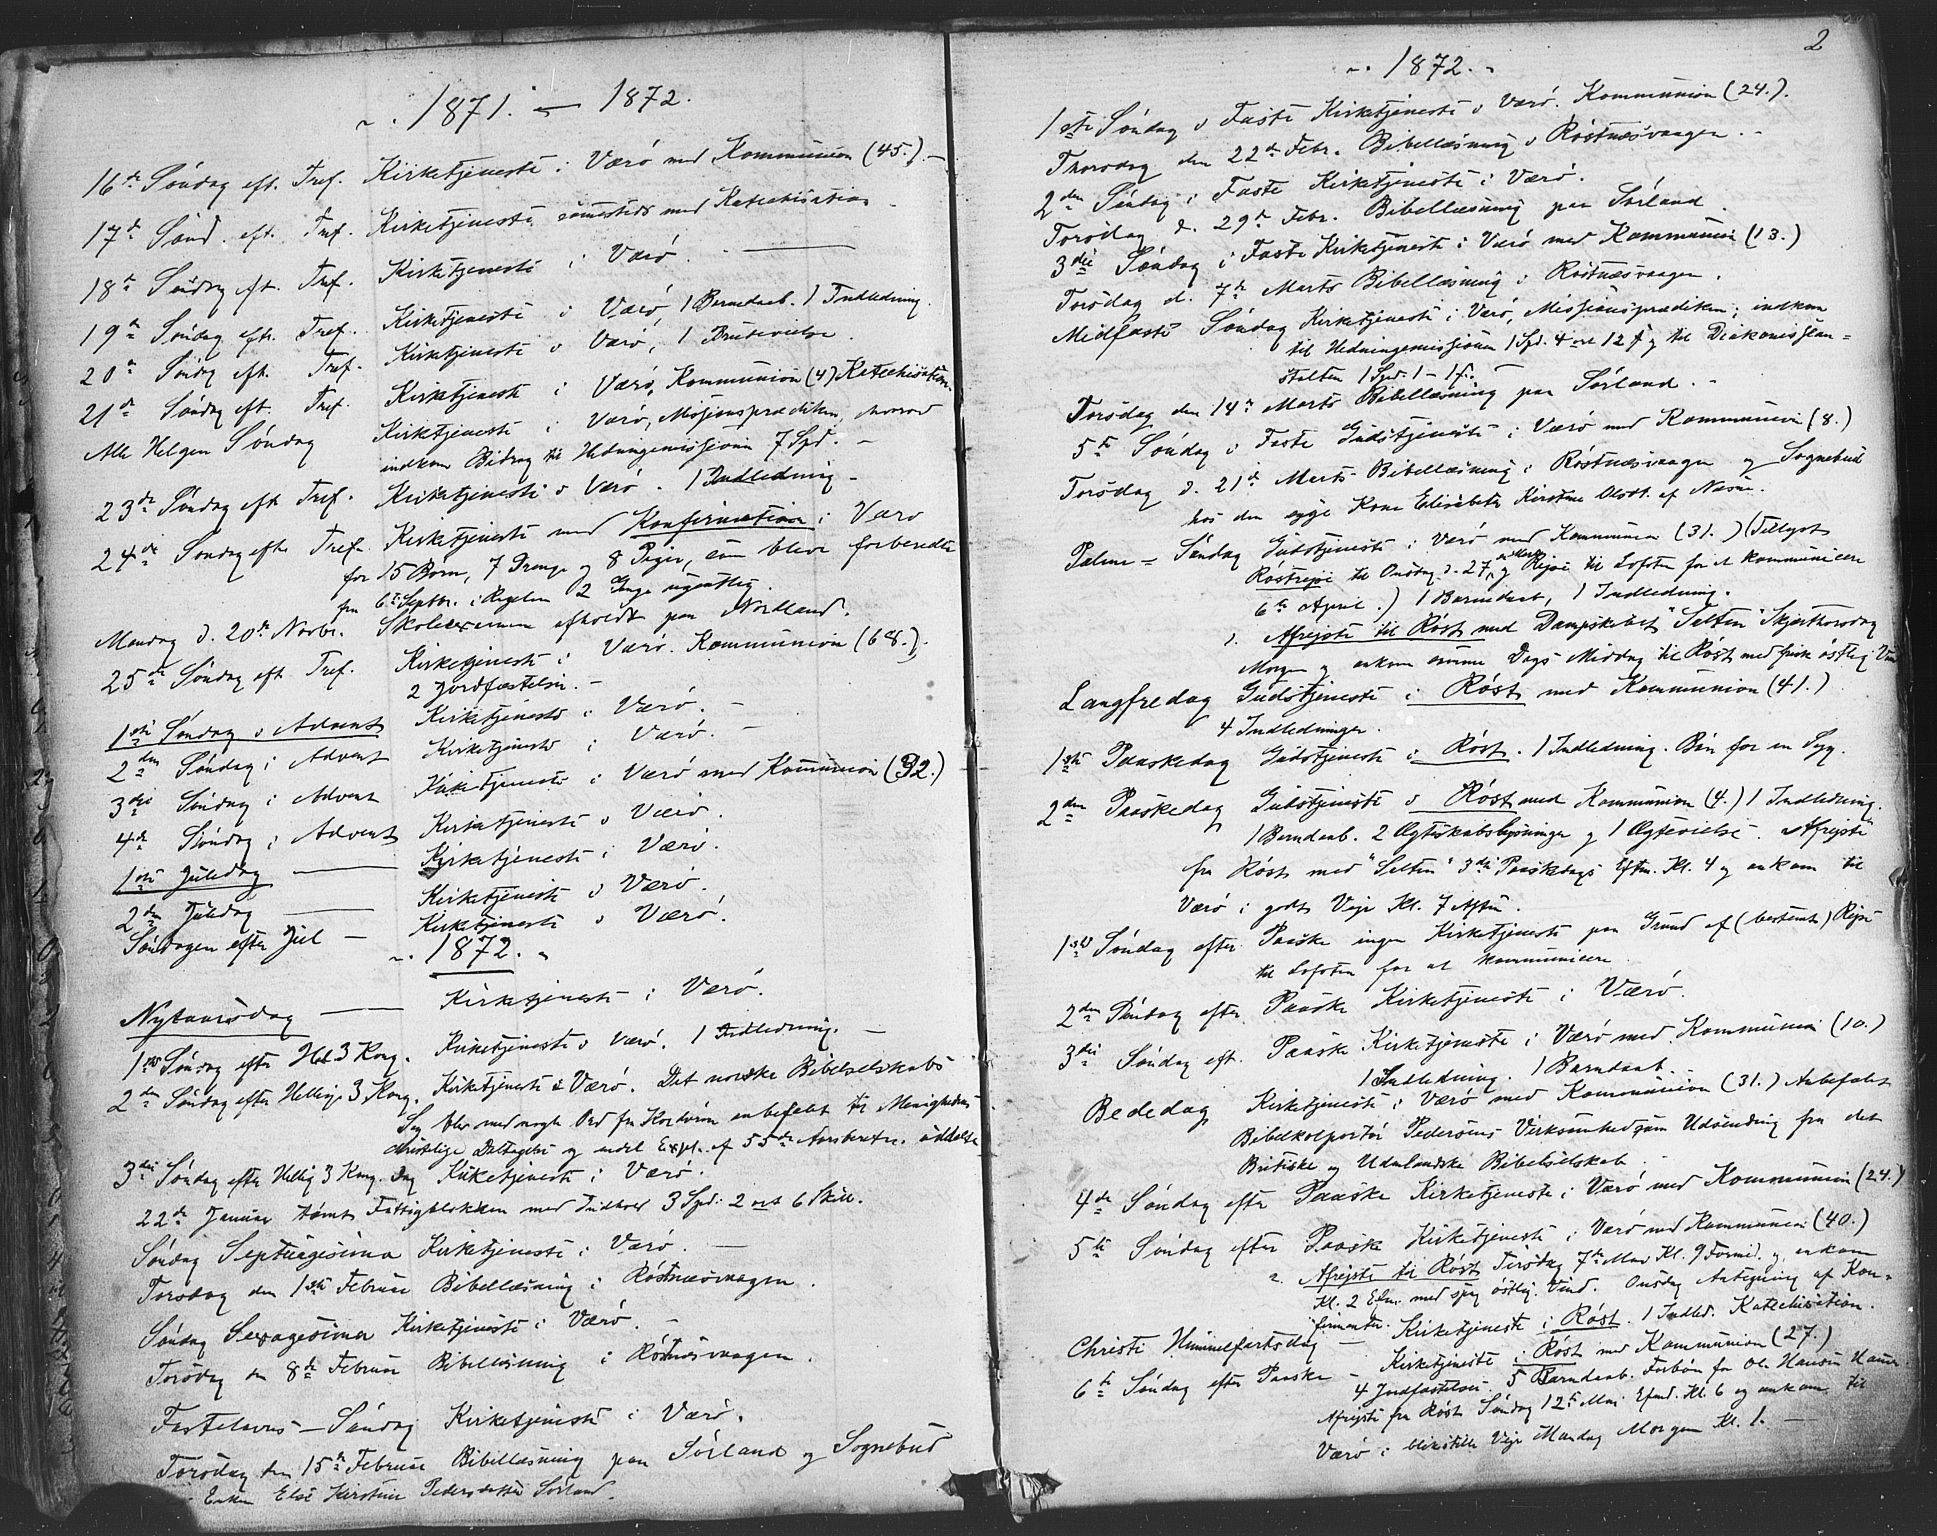 1871. — 1872.
16de Søndag eft. Tref. Kirketjeneste i Værø med Kommunion (45.) —
17de Sønd. eft. Tref. Kirketjeneste sammesteds med Katechisation
18de Søndag eft. Tref. Kirketjeneste i Værø.
19de Søndag eft. Tref. Kirketjeneste i Værø, 1 Barnedaab. 1 Indledning.
20de Søndag eft. Tref. Kirketjeneste i Værø, 1 Brudevielse.
21de Søndag eft. Tref. Kirketjeneste i Værø, Kommunion (4) Katechisation.
Alle Helgen Søndag Kirketjeneste i Værø, Missionsprædiken, hvorved
indkom Bidrag til Hedningemissionen 7 Spd. —
23de Søndag eft. Tref. Kirketjeneste i Værø. 1 Indledning —
24de Søndag eft. Tref. Kirketjeneste med Konfirmation i Værø
for 15 Børn, 7 Drenge og 8 Piger, som bleve forberedte
fra 6te Septbr. i Regelen 2 Gange ugentlig.
Mandag d. 20de Novbr. Skoleexamen afholdt paa Nordland.
25de Søndag eft. Tref. Kirketjeneste i Værø. Kommunion (68.)
2 Jordfæstelser. —
1ste Søndag i Advent Kirketjeneste i Værø. —
2den Søndag i Advent Kirketjeneste i Værø. —
3die Søndag i Advent Kirketjeneste i Værø med Kommunion (32.)
4de Søndag i Advent Kirketjeneste i Værø.
1ste Juledag — Kirketjeneste i Værø.
2den Juledag — Kirketjeneste i Værø.
Søndagen efter Jul — Kirketjeneste i Værø.
1872.
Nytaarsdag — Kirketjeneste i Værø.
1ste Søndag efter Hel. 3 Kong. Kirketjeneste i Værø. 1 Indledning. —
2den Søndag efter Hellig 3 Kong. Kirketjeneste i Værø. Det norske Bibelselskabs
Sag blev med nogle Ord fra Kordøren anbefalet til Menighedens
christelige Deltagelse og endel Expl. af 55de Aarsberetn. uddelte
3die Søndag efter Hellig 3 Kong. Dag Kirketjeneste i Værø.
22de Januar tømt Fattigblokken med Indhold 3 Spd. 2 ort 6 Skill.
Søndag Septuagesima Kirketjeneste i Værø. —
Torsdag den 1ste Februar Bibellæsning i Røstnæsvaagen.
Søndag Sexagesima Kirketjeneste i Værø. —
Torsdag den 8de Februar Bibellæsning i Røstnæsvaagen.
Fastelavns-Søndag Kirketjeneste i Værø.
Torsdag den 15de Februar Bibellæsning paa Sørland og Sognebud
Enken Else Kirstine Pedersdatter Sørland.
2
1872.
1ste Søndag i Faste Kirketjeneste i Værø. Kommunion (24.).
Thorsdag den 22de Febr. Bibellæsning i Røstnæsvaagen. —
2den Søndag i Faste Kirketjeneste i Værø.
Torsdag d. 29de Febr. Bibellæsning paa Sørland.
3die Søndag i Faste Kirketjeneste i Værø med Kommunion (13.)
Torsdag d. 7de Marts Bibellæsning i Røstnæsvaagen.
Midfaste Søndag Kirketjeneste i Værø, Missionsprædiken; indkom
til Hedningemissionen 1 Spd. 4 ort 12 ß og til Diakonissean-
stalten 1 Spd. 1 - 1 ß. —
Torsdag den 14de Marts Bibellæsning paa Sørland. —
5te Søndag i Faste Gudstjeneste i Værø med Kommunion (8.)
Torsdag d. 21de Marts Bibellæsning i Røstnæsvaagen og Sognebud
hos den syge Kone Elisabeth Kirstine Olsdt. af
Palme-Søndag Gudstjeneste i Værø med Kommunion (31.) (Tillyst
Røstrejse til Onsdag d. 27, og Rejse til Lofoten for at kommunicere
6te April.) 1 Barnedaab, 1 Indledning.
Afrejste til Røst med Dampskibet "Salten" Skjærthorsdag
Morgen og ankom samme Dags Middag til Røst med frisk østlig Vind
Langfredag Gudstjeneste i Røst med Kommunion (41.)
4 Indledninger.
1ste Paaskedag Gudstjeneste i Røst. 1 Indledning. Bøn for en Syg.
2den Paaskedag Gudstjeneste i Røst med Kommunion (4.) 1 Indledning.
1 Barnedaab. 2 Ægteskabslysninger og 1 Ægtevielse. Afrejste
fra Røst med "Salten" 3die Paaskedags Eftm. Kl. 4 og ankom til
Værø i godt Vejr Kl. 7 Aften.
1ste Søndag efter Paaske ingen Kirketjeneste paa Grund af (bestemt) Rejse
til Lofoten for at kommunicere
2den Søndag efter Paaske Kirketjeneste i Værø.
3die Søndag eft. Paaske Kirketjeneste i Værø med Kommunion (10.)
1 Indledning. 1 Barnedaab.
Bededag Kirketjeneste i Værø med Kommunion (31.) Anbefalet
Bibelkolportør Pedersens Virksomhed som Udsending fra det
Britiske og Udenlandske Bibelselskab.
4de Søndag efter Paaske Kirketjeneste i Værø med Kommunion (24.)
5te Søndag efter Paaske Kirketjeneste i Værø med Kommunion (40.)
Afrejste til Røst Tirsdag 7de Mai Kl. 9 Formd. og ankom
Kl. 2 Efm. med spag østlig Vind. Onsdag Antegning af Kon-
firmanter.
Christi Himmelfartsdag — Kirketjeneste i Røst. 1 Indled. Katechisation.
6te Søndag efter Paaske — Kirketjeneste i Røst med Kommunion (27.)
4 Jordfæstelser. 5 Barnedaab. Forbøn for Ole Hansen
Afrejste fra Røst Søndag 12te Mai Efmd. Kl. 6 og ankom til
Værø i blikstille Vejr Mandag Morgen Kl. 1. —